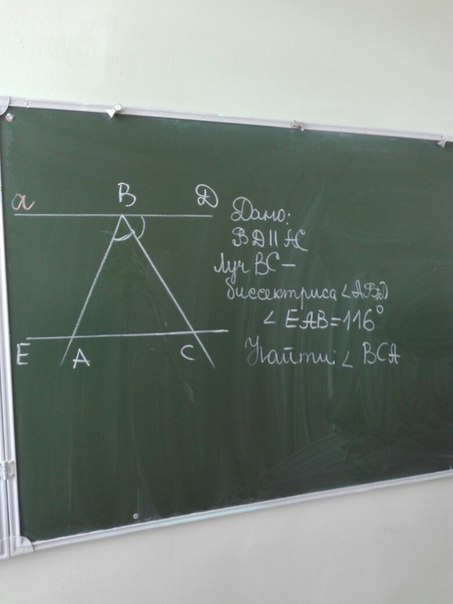 a B D
E A C
Дано:
BD || AC
Луч BC –
биссектриса ∠ABD
∠ EAB = 116°
Найти: ∠ BCA